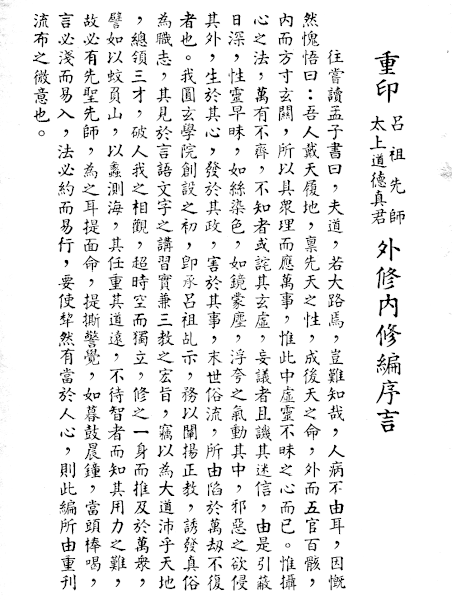 重印 呂祖先師 太上道德真君 外修內修編序言
往嘗讀孟子書曰，夫道，若大路焉，豈難知哉，人病不由耳，因慨
然愧悟曰：吾人戴天履地，稟先天之性，成後天之命，外而五官百骸，
內而方寸玄關，所以具衆理而應萬事，惟此中虛靈不昧之心而已。惟攝
心之法，萬有不齊，不知者或詫其玄虛，妄議者且譏其迷信，由是引蔽
日深，性靈早昧，如絲染色，如鏡蒙塵，浮夸之氣動其中，邪惡之欲侵
其外，生於其心，發於其政，害於其事，末世俗流，所由陷於萬劫不復
者也。我圓玄學院創設之初，卽承呂祖乩示，務以闡揚正教，誘發真俗
為職志，其見於言語文字之講習實兼三教之宏旨，竊以為大道沛乎天地
，總領三才，破人我之相觀，超時空而獨立，修之一身而推及於萬衆，
譬如以蚊負山，以蠡測海，其任重其道遠，不待智者而知其用力之難，
故必有先聖先師，為之耳提面命，提撕警覺，如暮鼓晨鐘，當頭棒喝，
言必淺而易入，法必約而易行，要使犂然有當於人心，則此編所由重刊
流布之微意也。